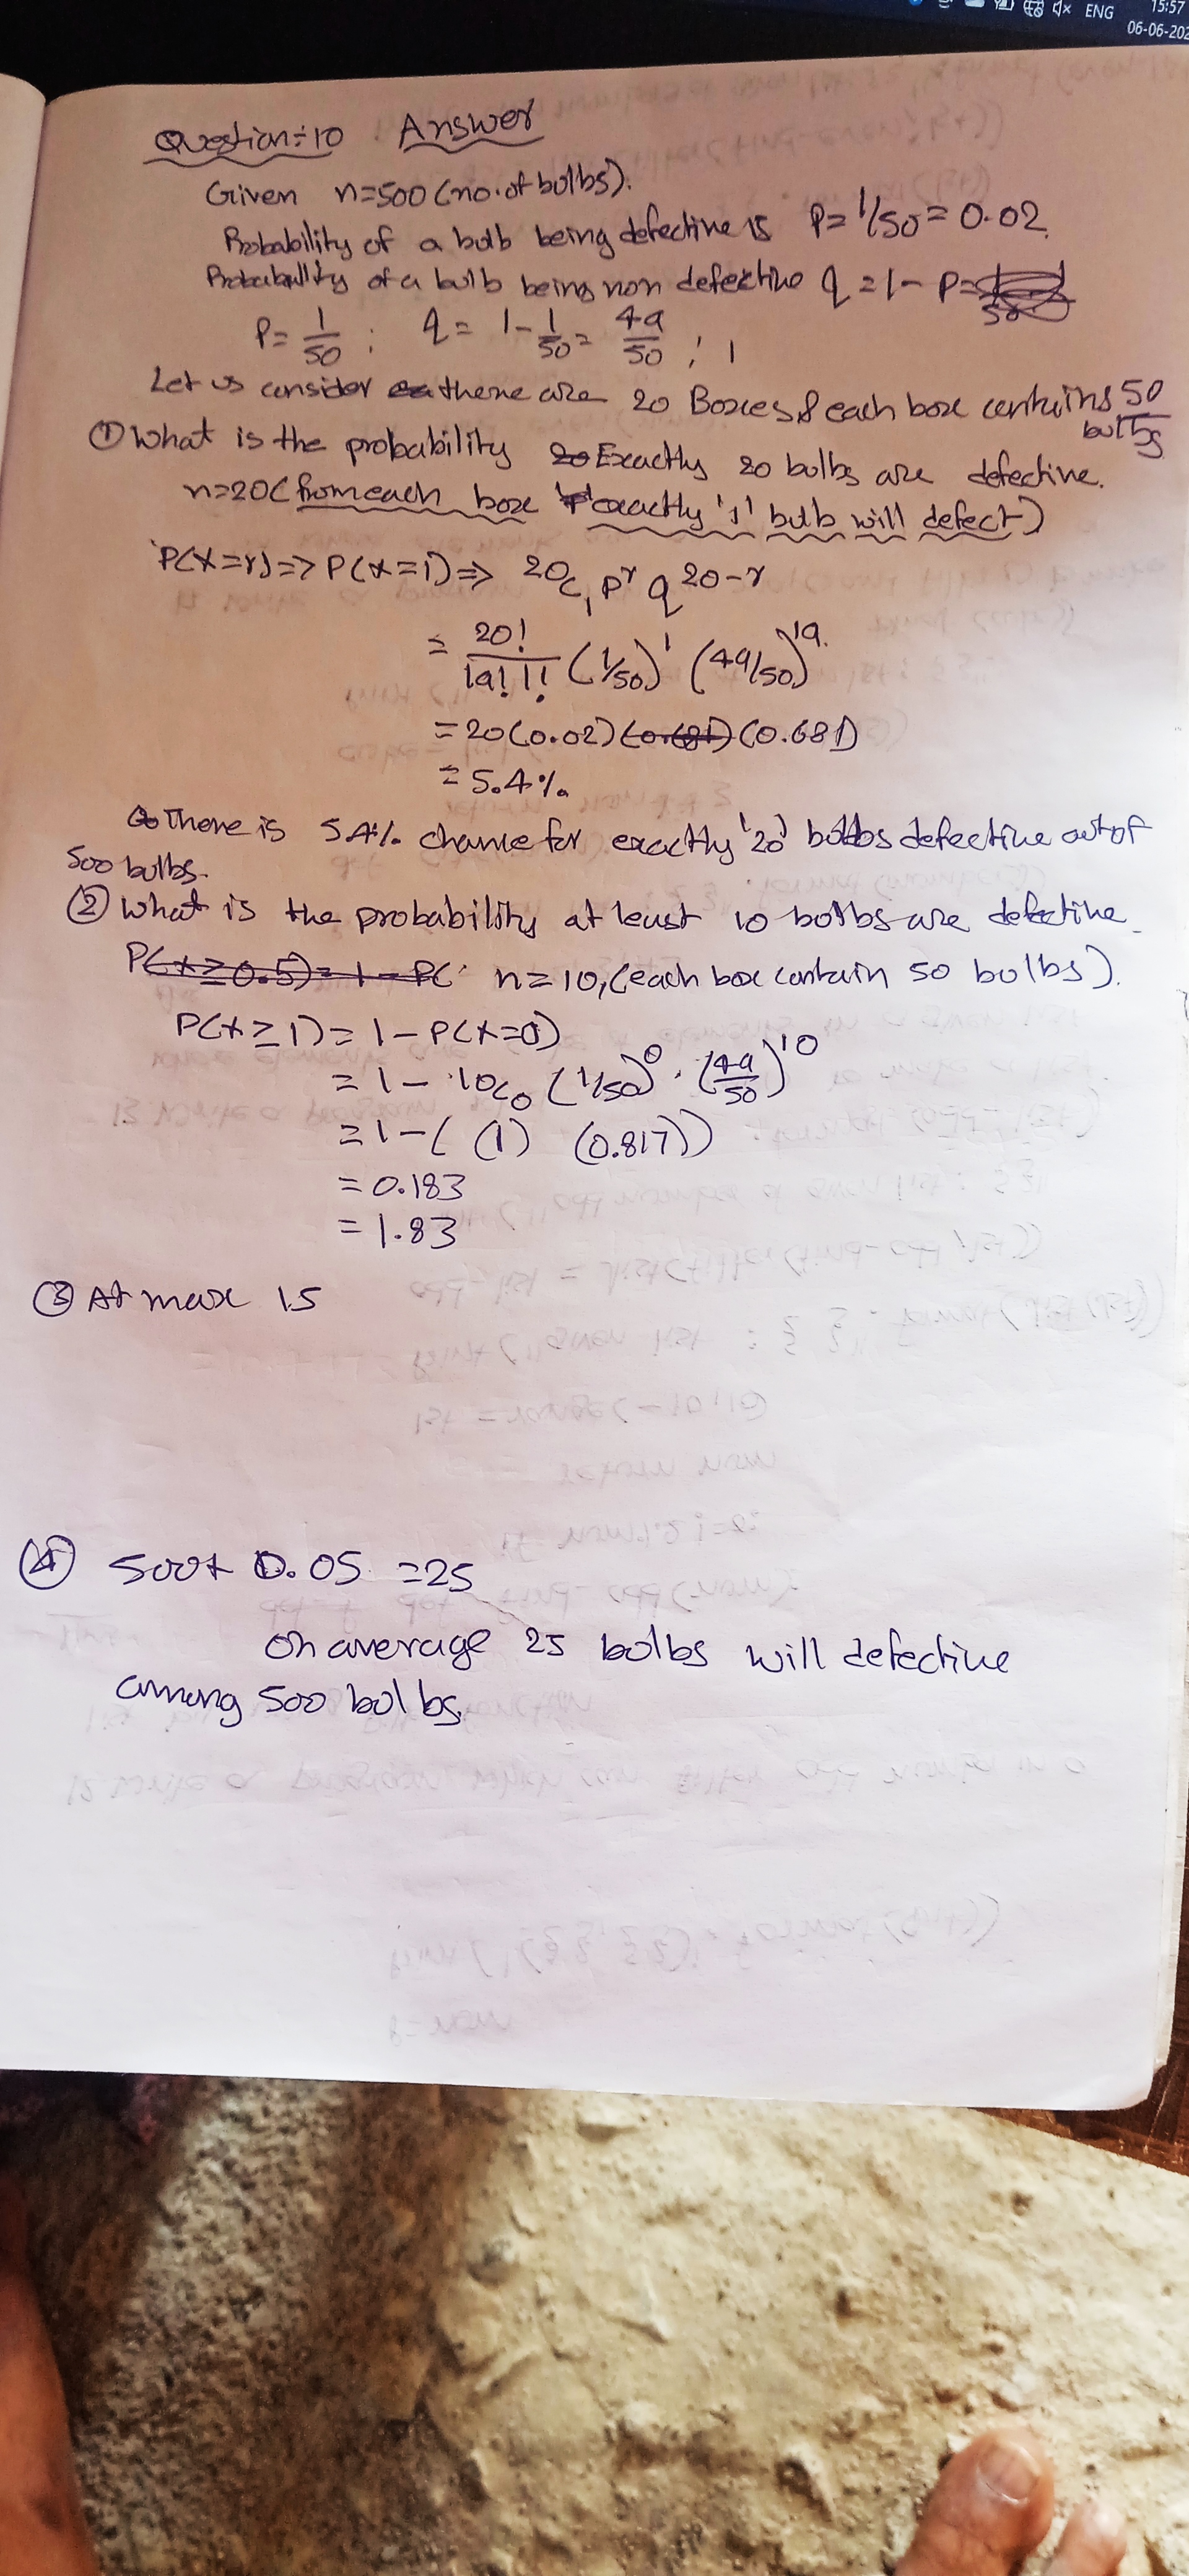 ENG
15:57
06-06-202
Question:-10 Answer
Given n=500 (no. of bolbs).
Probability of a bulb being defective is P=1/50=0.02.
Probability of a bulb being non defective q=1-P=
P=1/50 ; q= 1-1/50= 49/50 ; 1
Let us consider there are 20 Boxes & each box contains 50 bulbs
① What is the probability Exactly 20 bulbs are defective.
n=20( from each box exactly '1' bulb will defect)
P(x=r)=>P(x=1)=> 20c1 p^r q^20-r
= 20!/19!1! (1/50)^1 (49/50)^19.
=20(0.02)(0.681)(0.681)
= 5.4%.
There is 5.4%. chance for exactly '20' bolbs defective out of
500 bulbs.
② What is the probability at least 10 bolbs are defective.
P(x≥0.5)=1-P( n=10,(each box contain 50 bolbs).
P(x≥1)=1-P(x=0)
=1- 10c0 (1/50)^0 . (49/50)^10
=1-( (1) (0.817))
=0.183
=1.83
③ At max 15
④ 500* 0.05 =25
on average 25 bolbs will defective
among 500 bolbs.